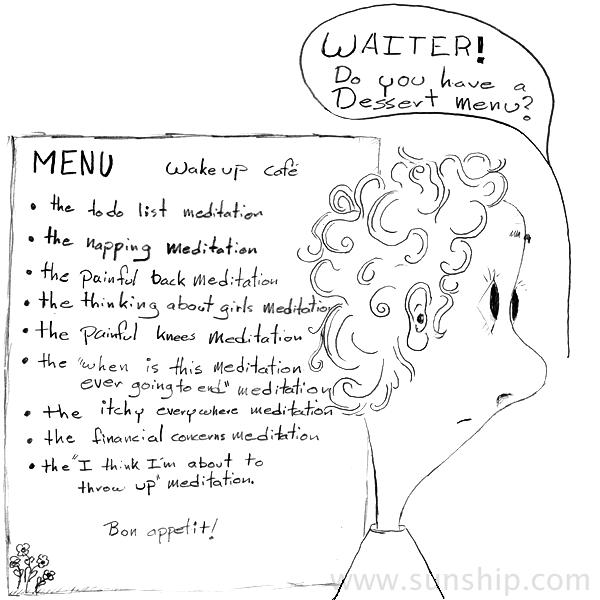 WAITER!
Do you have a
Dessert menu?
MENU Wake up café
• the to do list meditation
• the napping meditation
• the painful back meditation
• the thinking about girls meditation
• the painful knees meditation
• the "when is this meditation
ever going to end" meditation
• the itchy everywhere meditation
• the financial concerns meditation
• the "I think I'm about to
throw up" meditation.
Bon appetit!
www.sunship.com